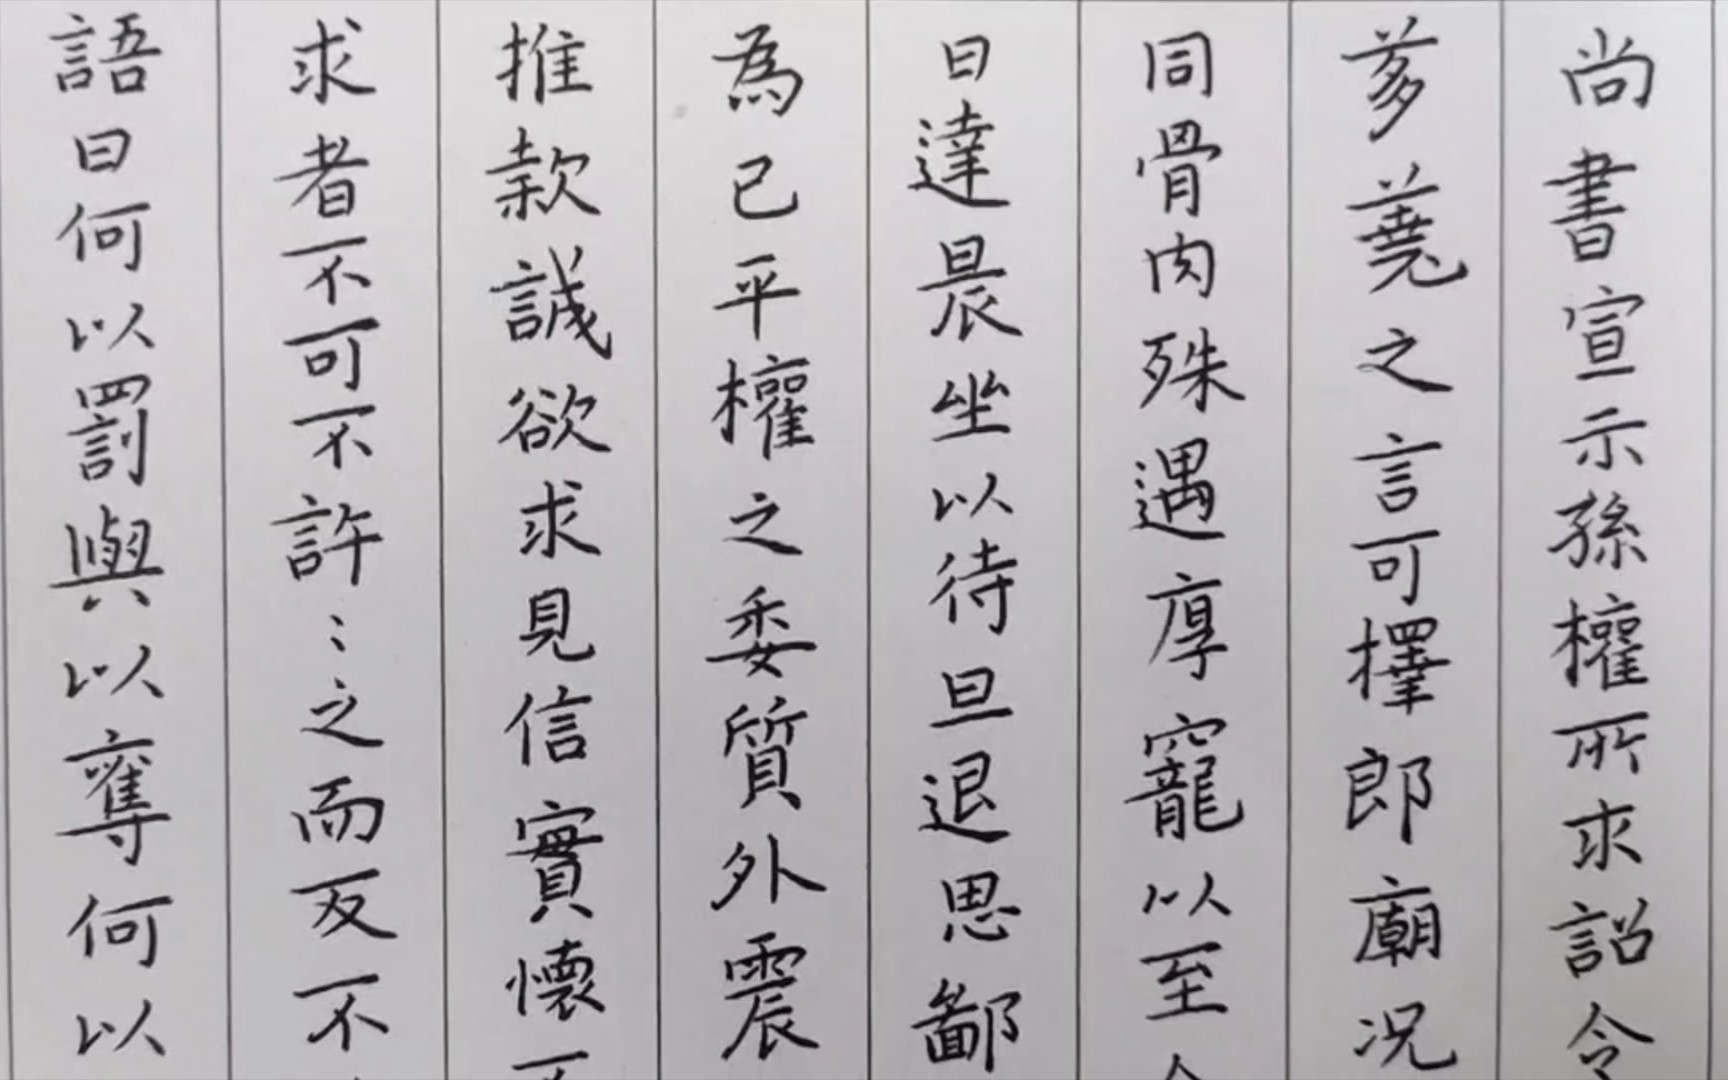 尚書宣示孫權所求詔令
芗荛之言可擇郎廟況
同骨肉殊遇厚寵以至
日達晨坐以待旦退思鄙
為已平權之委質外震
推款誠欲求見信實懷不
求者不可不許〻之而反不
語曰何以罰與以奪何以